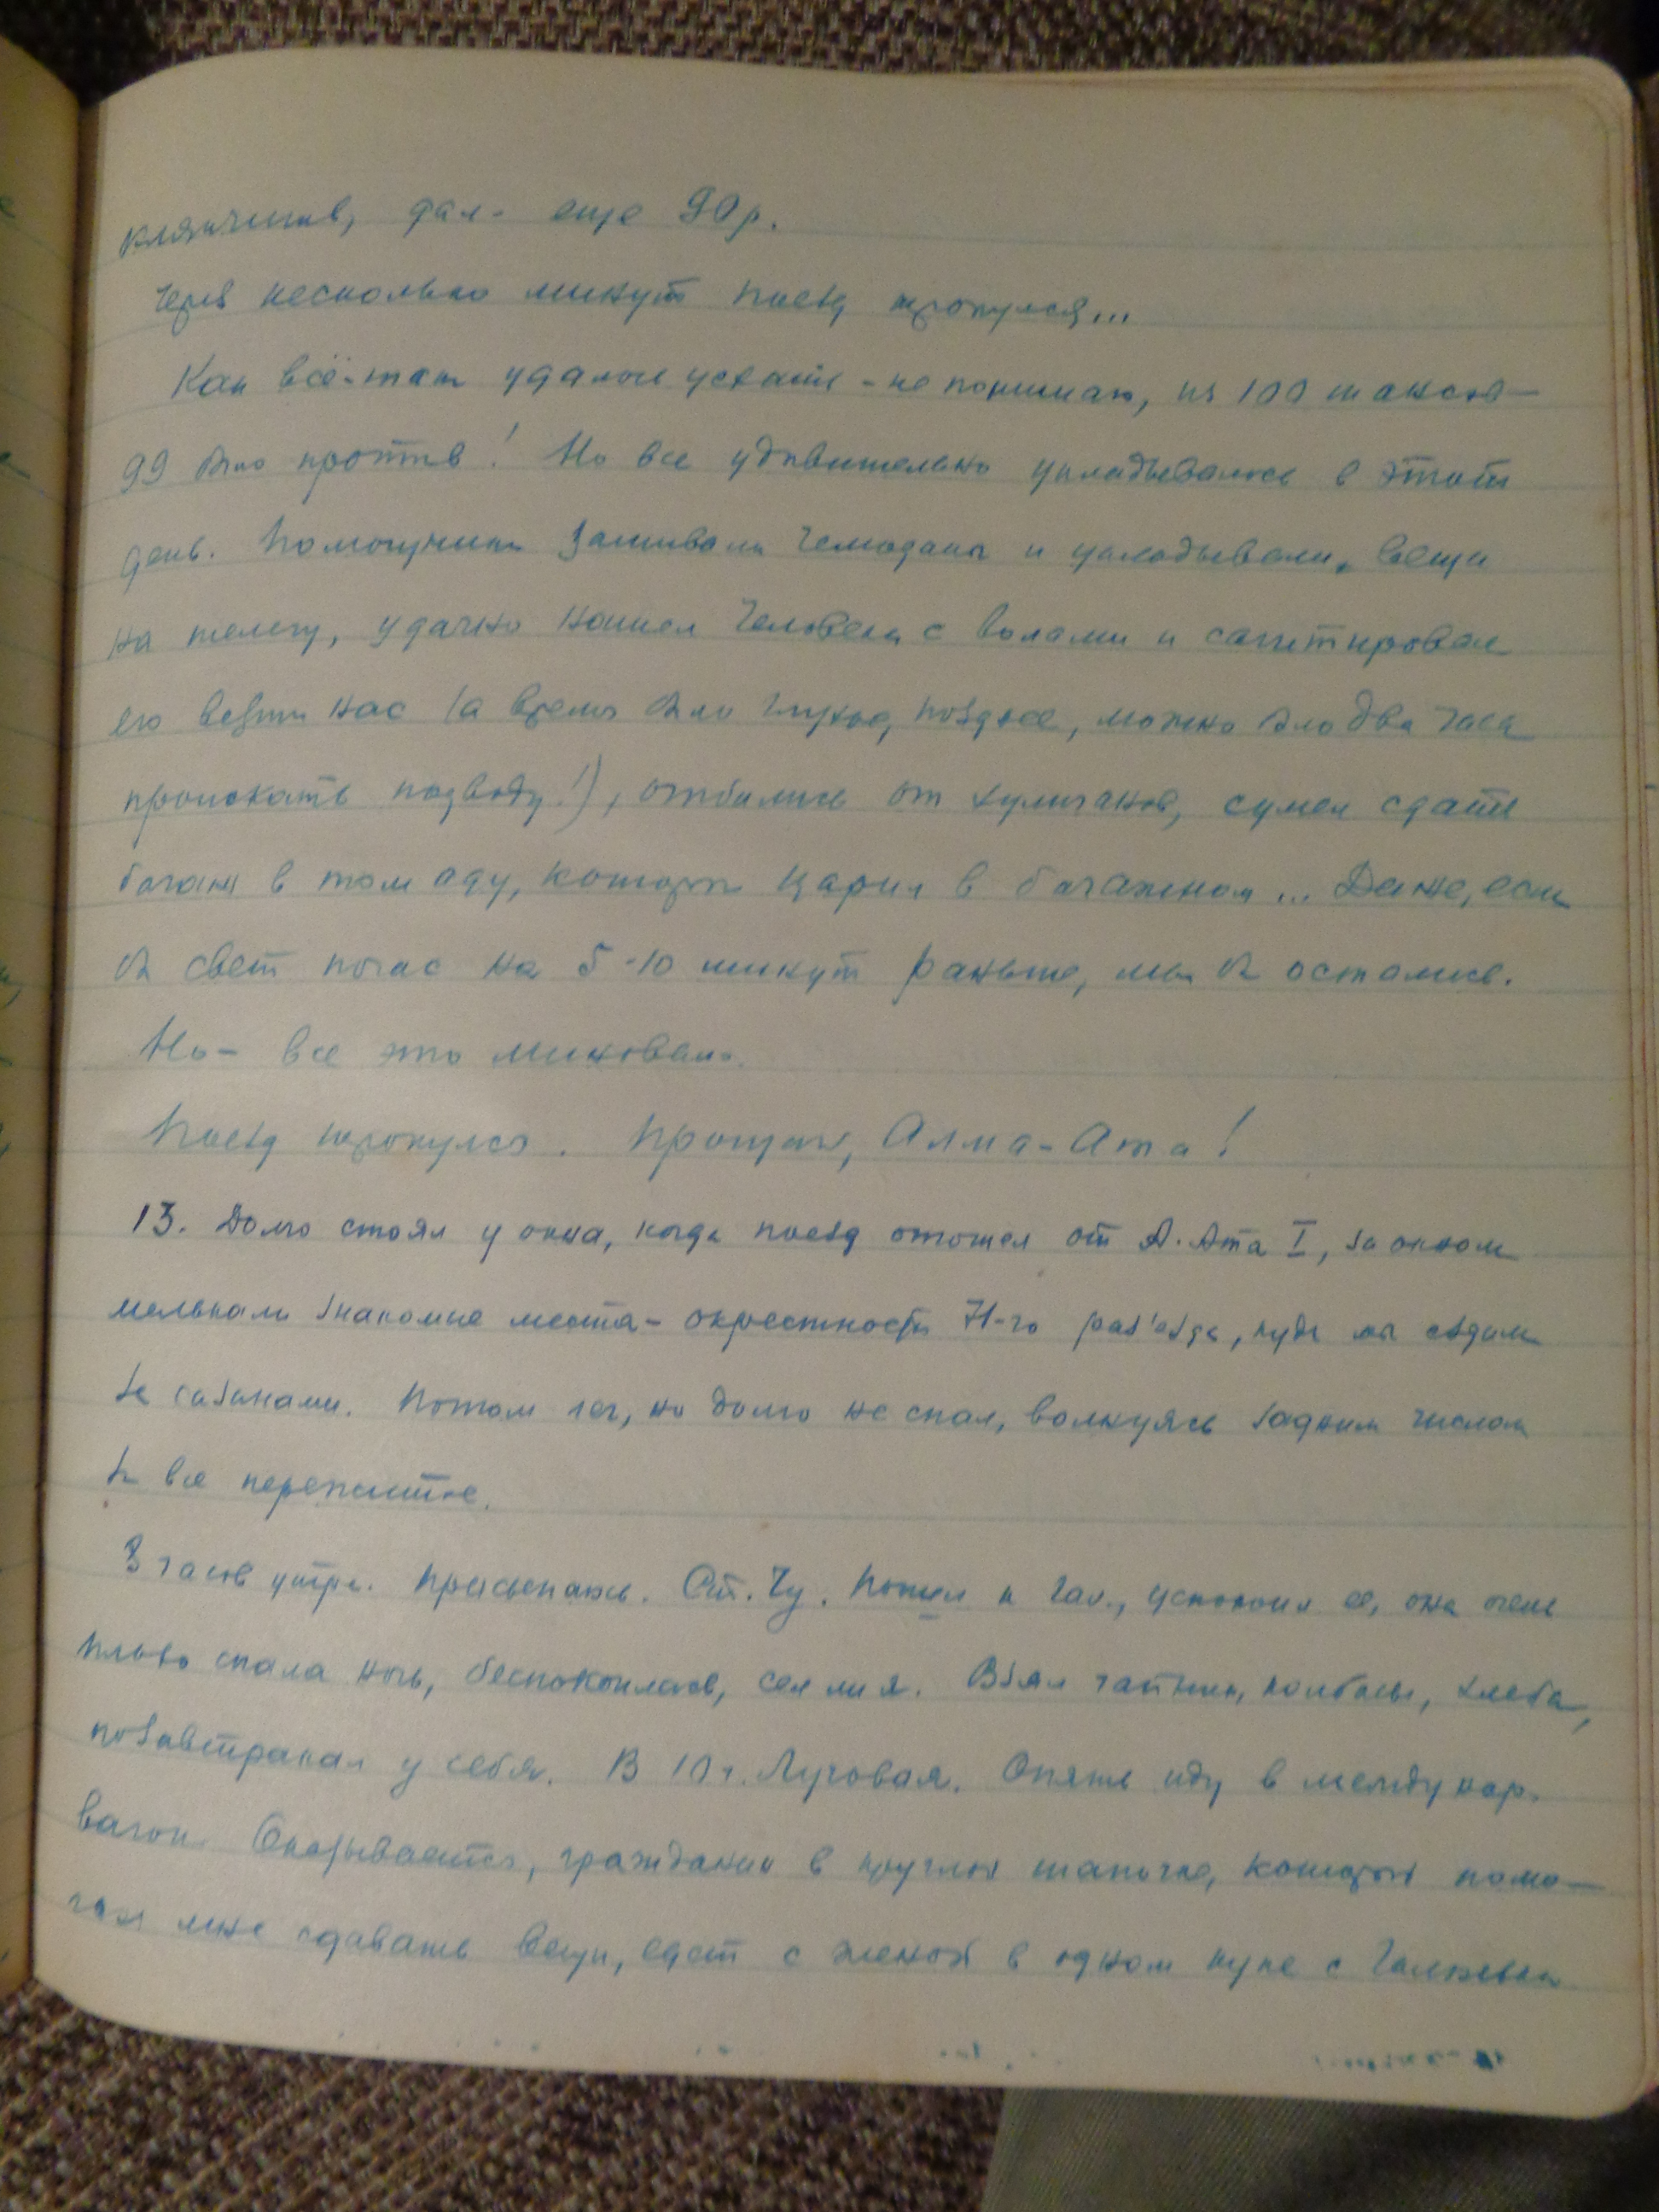 клянчить, дал- еще 90 р.
Через несколько минут поезд тронулся...
Как всё-таки удалось уехать - не понимаю, из 100 шансов -
99 было против! Но все удивительно укладывалось в этот
день. Помощники зашивали чемоданы и укладывали вещи
на телегу, удачно нашел человека с волами и сагитировал
его везти нас (а время было глухое, позднее, можно было два часа
проискать подводу!), отбились от хулиганов, сумел сдать
багаж в том аду, который царил в багажном... Даже, если
б свет погас на 5-10 минут раньше, мы б остались.
Но - все это миновало.
Поезд тронулся. Прощай, Алма-Ата!
13. Долго стоял у окна, когда поезд отошел от А.Ата I, за окном
мелькали знакомые места - окрестности 71-го раз'езда, куда мы ездили
за сазанами. Потом лег, но долго не спал, волнуясь задним числом
за все пережитое.
3 часов утра. Просыпаюсь. Ст. Чу. Пошел к Гал., успокоил ее, она очень
плохо спала ночь, беспокоилась, сел ли я. Взял чайник, колбасы, хлеба,
позавтракал у себя. В 10 ч. Луговая. Опять иду в междунар.
вагон. Оказывается, гражданин в круглой шапочке, который помо-
гал мне сдавать вещи, едет с женой в одном купе с